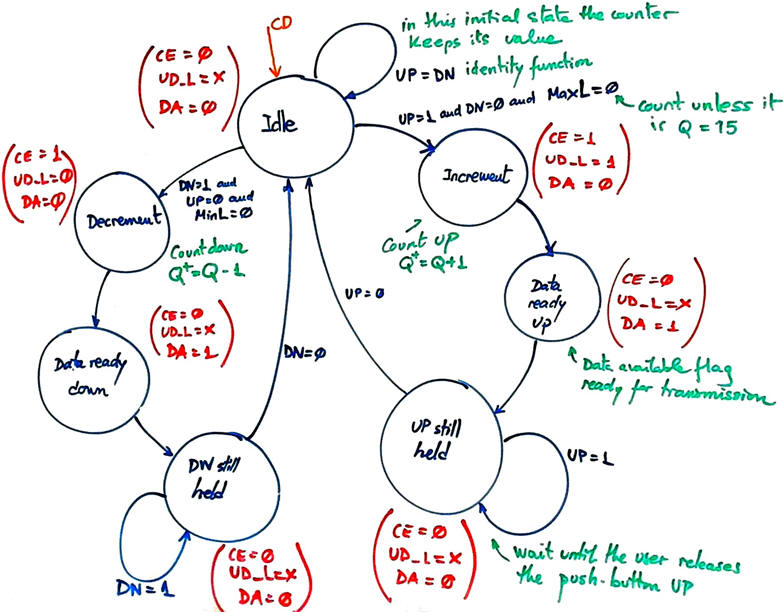 CD
in this initial state the counter
keeps its value
UP = DN identity function
CE = Ø
UD_L = X
DA = Ø
Idle
UP=1 and DN=Ø and MaxL=Ø
count unless it
is Q = 15
CE = 1
UD_L = Ø
DA = Ø
Decrement
DN=1 and
UP=Ø and
MinL=Ø
Count down
Q+ = Q - 1
Increment
CE = 1
UD_L = 1
DA = Ø
Count up
Q+ = Q+1
Data
ready
UP
CE = Ø
UD_L = X
DA = 1
Data available flag
ready for transmission
UP=Ø
CE = Ø
UD_L = X
DA = 1
Data ready
down
DN=Ø
DW still
held
DN = 1
CE = Ø
UD_L = X
DA = Ø
UP still
held
UP=1
CE = Ø
UD_L = X
DA = Ø
wait until the user releases
the push-button UP